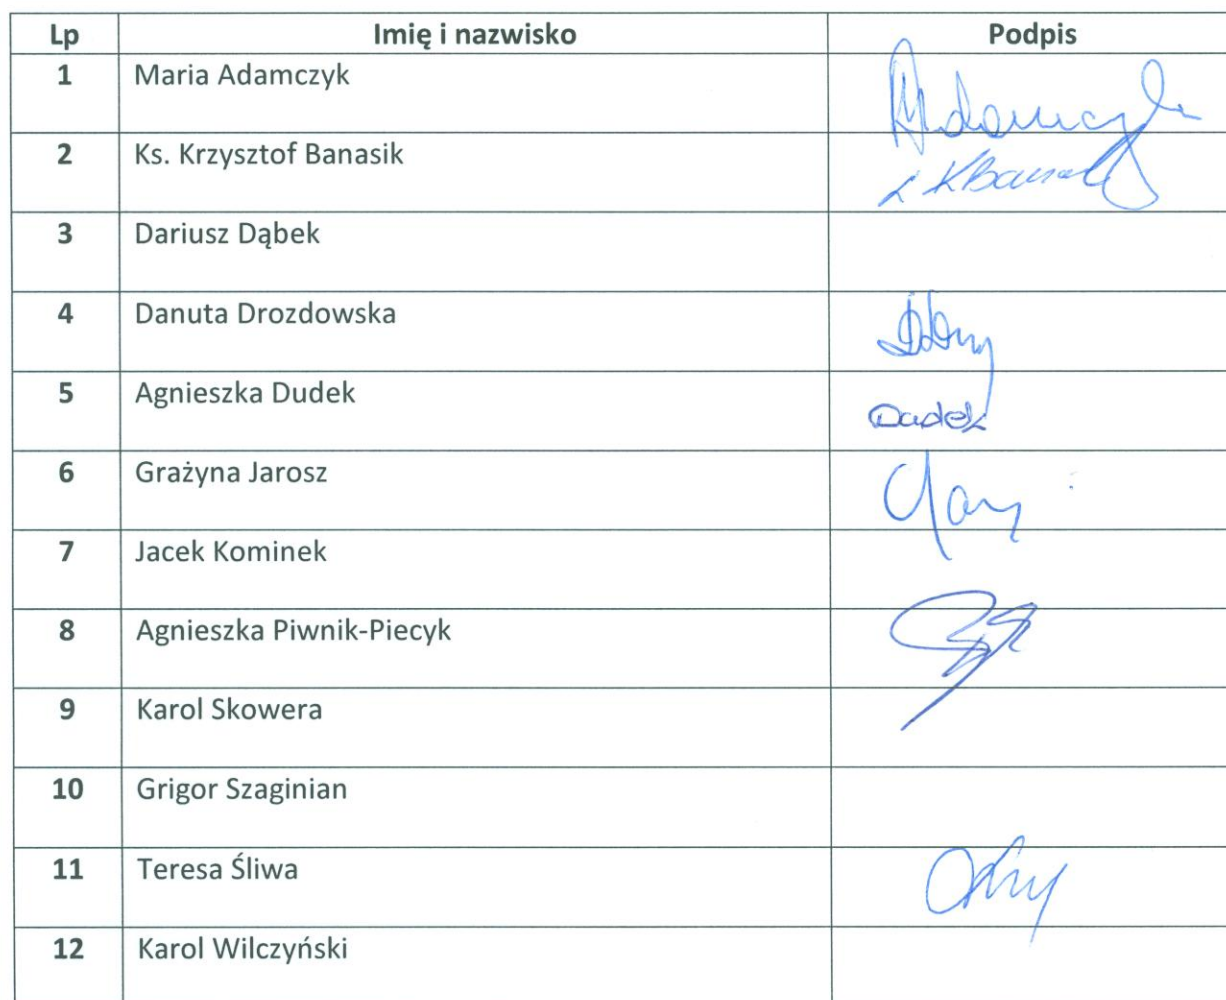 Lp Imię i nazwisko Podpis
1 Maria Adamczyk Adamczyk
2 Ks. Krzysztof Banasik
3 Dariusz Dąbek
4 Danuta Drozdowska
5 Agnieszka Dudek Dudek
6 Grażyna Jarosz
7 Jacek Kominek
8 Agnieszka Piwnik-Piecyk
9 Karol Skowera
10 Grigor Szaginian
11 Teresa Śliwa
12 Karol Wilczyński